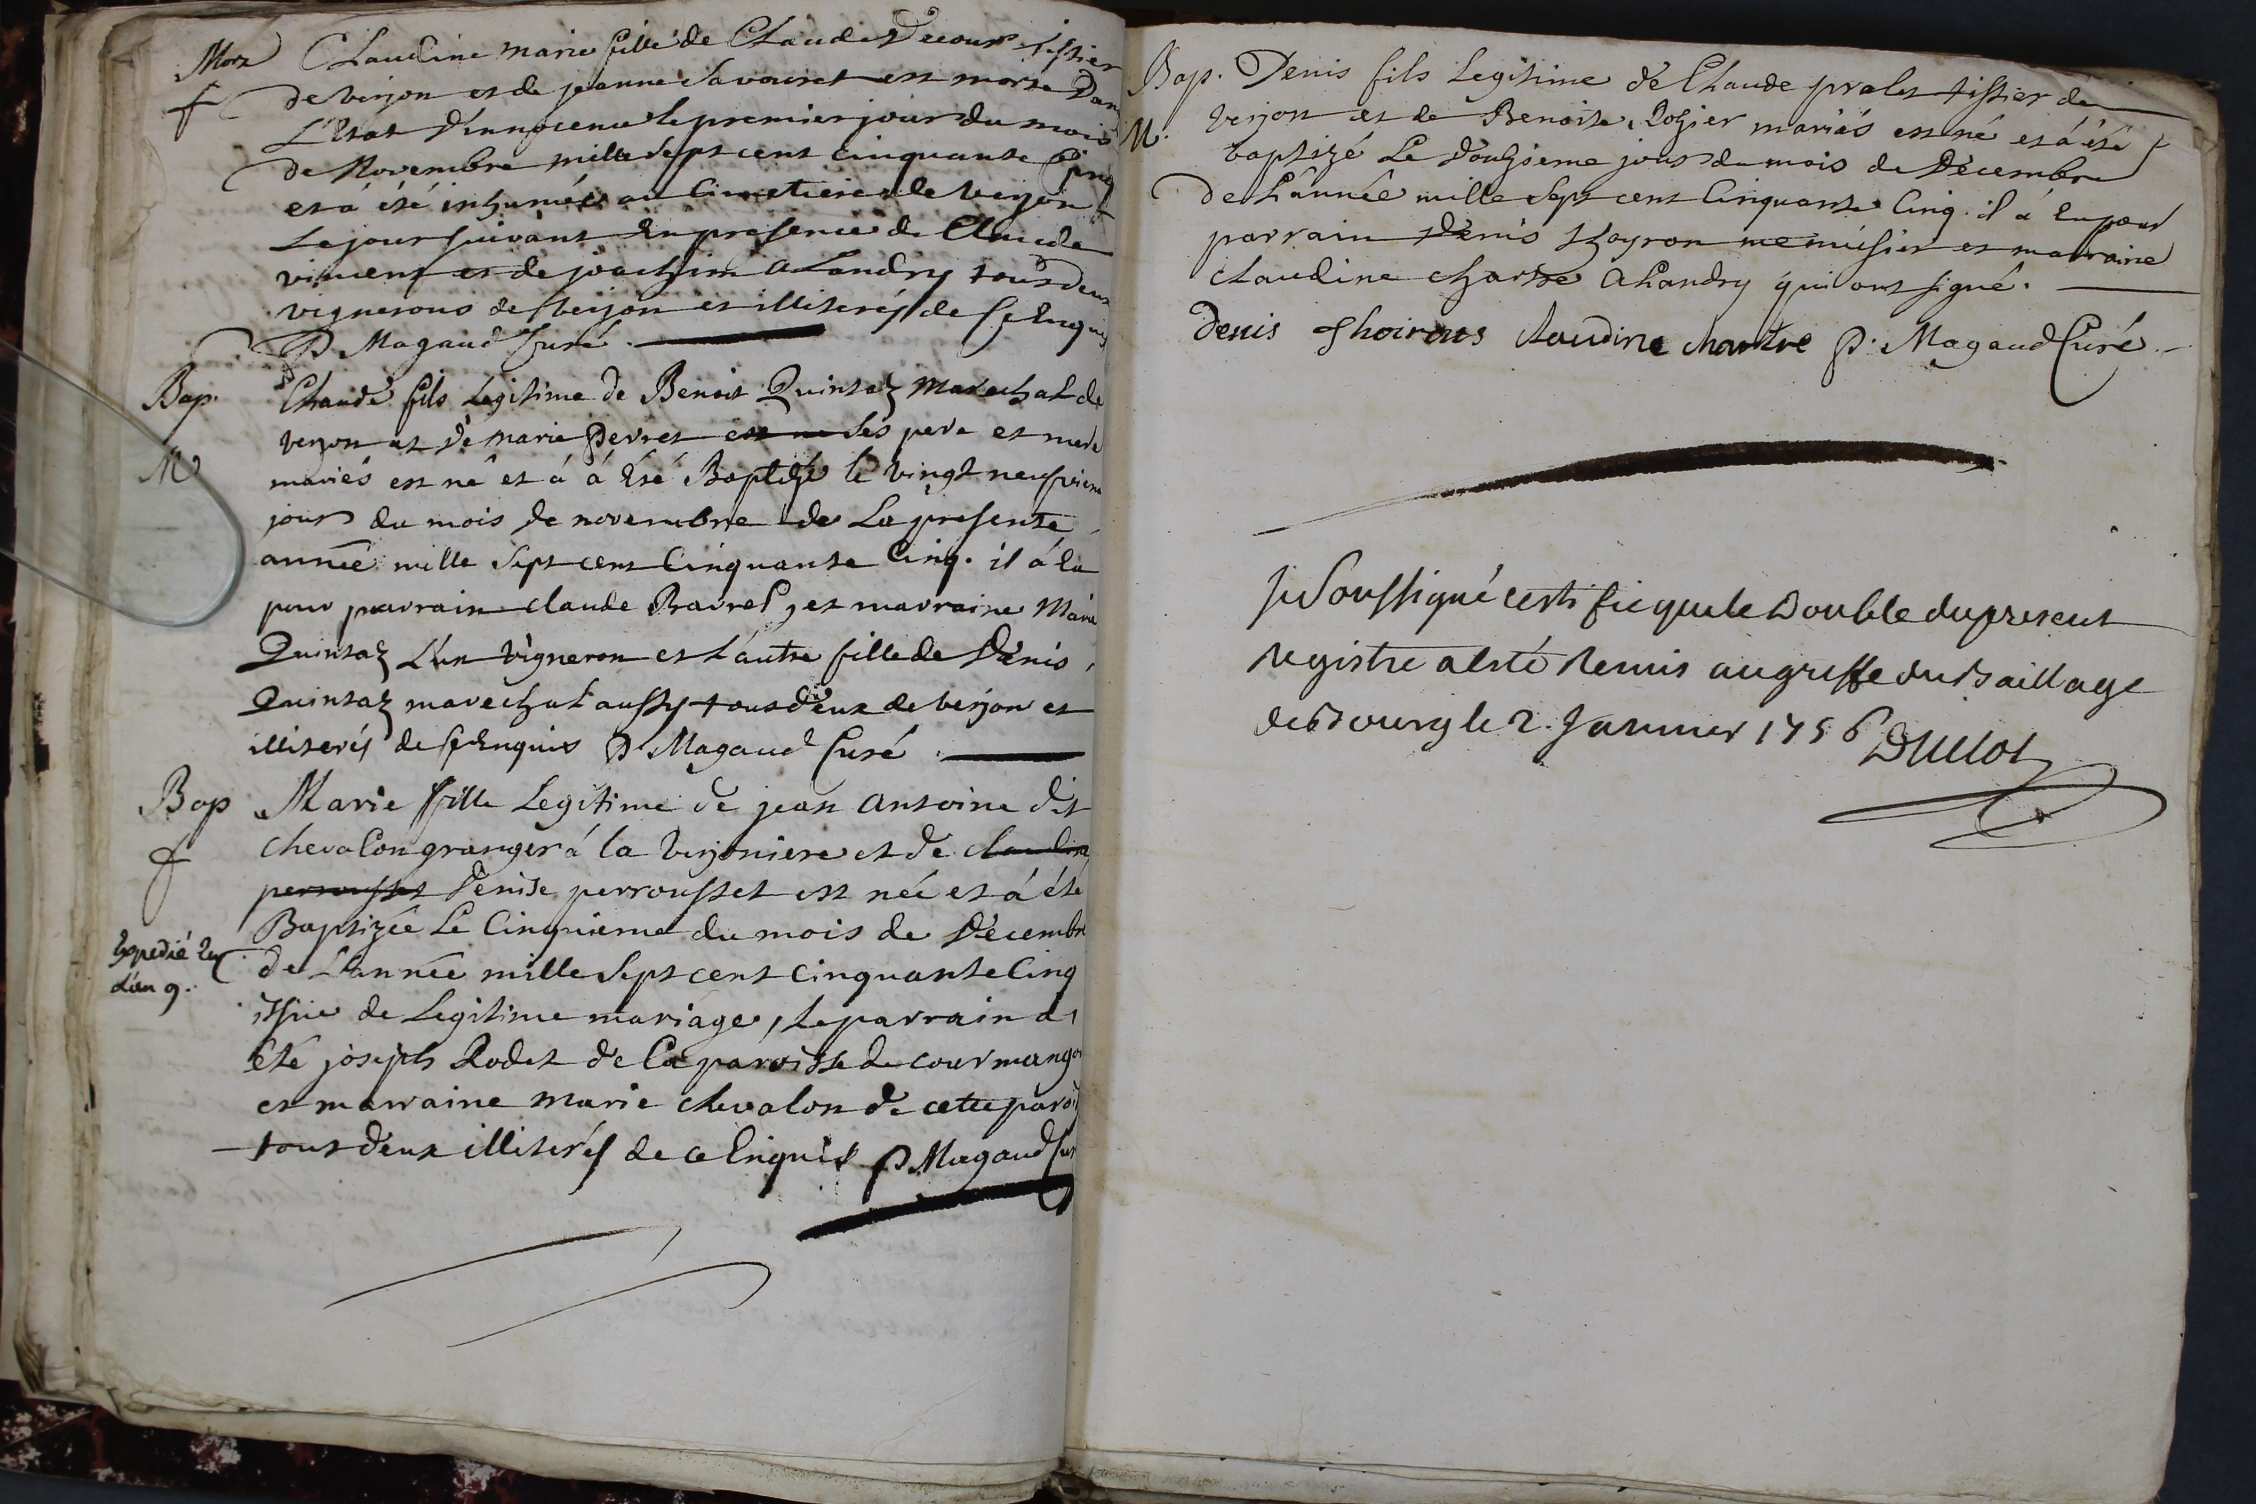 Mort Claudine marie fille de Claude Decour tissier
f de verjon et de jeanne Savouret est morte Dans
L'Etat d'innocence le premier jour du mois
de Novembre mille sept cent cinquante Cinq
et a été inhumée au Cimetiere de verjon
Le jour suivant En presence de Claude
vincent et de joachim a Landry tous deux
vignerons de verjon et illiterés de ce Enquis
P Magaud Curé
Bap. Claude fils Legitime de Benoit Quintaz Marechal de
verjon et de marie perret est né ses pere et mere
M mariés est né et á á Eté Baptizé le vingt neufvieme
jour du mois de novembre de La presente
année mille Sept cent Cinquante Cinq. il á Eu
pour parrain claude Bavrel, et marraine Marie
Quintaz L'un vigneron et L'autre fille de Dénis
Quintaz marechal aussy tous deux de verjon et
illiterés de ce Enquis P Magaud Curé
Bap Marie fille Legitime de jean Antoine dit
f chevalon granger á la verjoniere et de claudine
perrousset Denise perrousset est née et á été
Baptizée Le Cinquieme du mois de Décembre
Expedié en de L'année mille Sept cent cinquante Cinq
L'an 9. issüe de Legitime mariage, le parrain á
été joseph Rodet de la paroisse de courmangou
et marraine marie chevalon de cette paroisse
tous deux illiterés de ce Enquis P Magaud Curé
Bap. Denis fils Legitime de Claude pralet tissier de
M. Verjon et de Benoite Rohier mariés est né et á été
baptizé Le douzieme jour du mois de Décembre
de L'année mille Sept cent Cinquante Cinq. il á Eu pour
parrain Denis thoyron menuisier et marraine
claudine chartre a Landry qui ont signé.
Denis Thoirons Claudine chartre P. Magaud Curé
Je Soussigné certifie que le Double du present
Registre a esté Remis au greffe du Baillage
de Bourg le 2. Janvier 1756